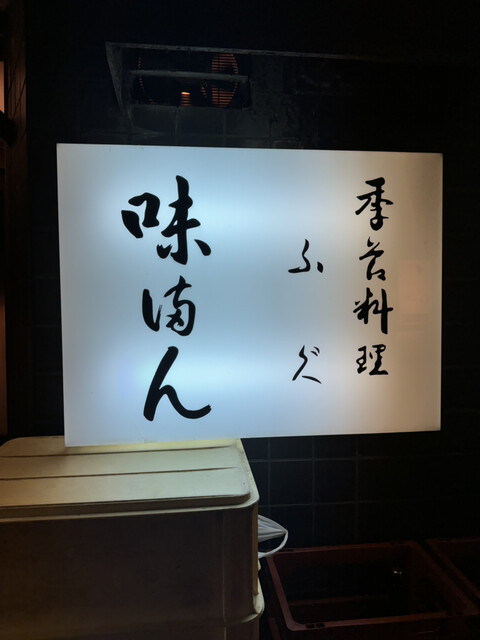 季苔料理
ふぐ
味満ん